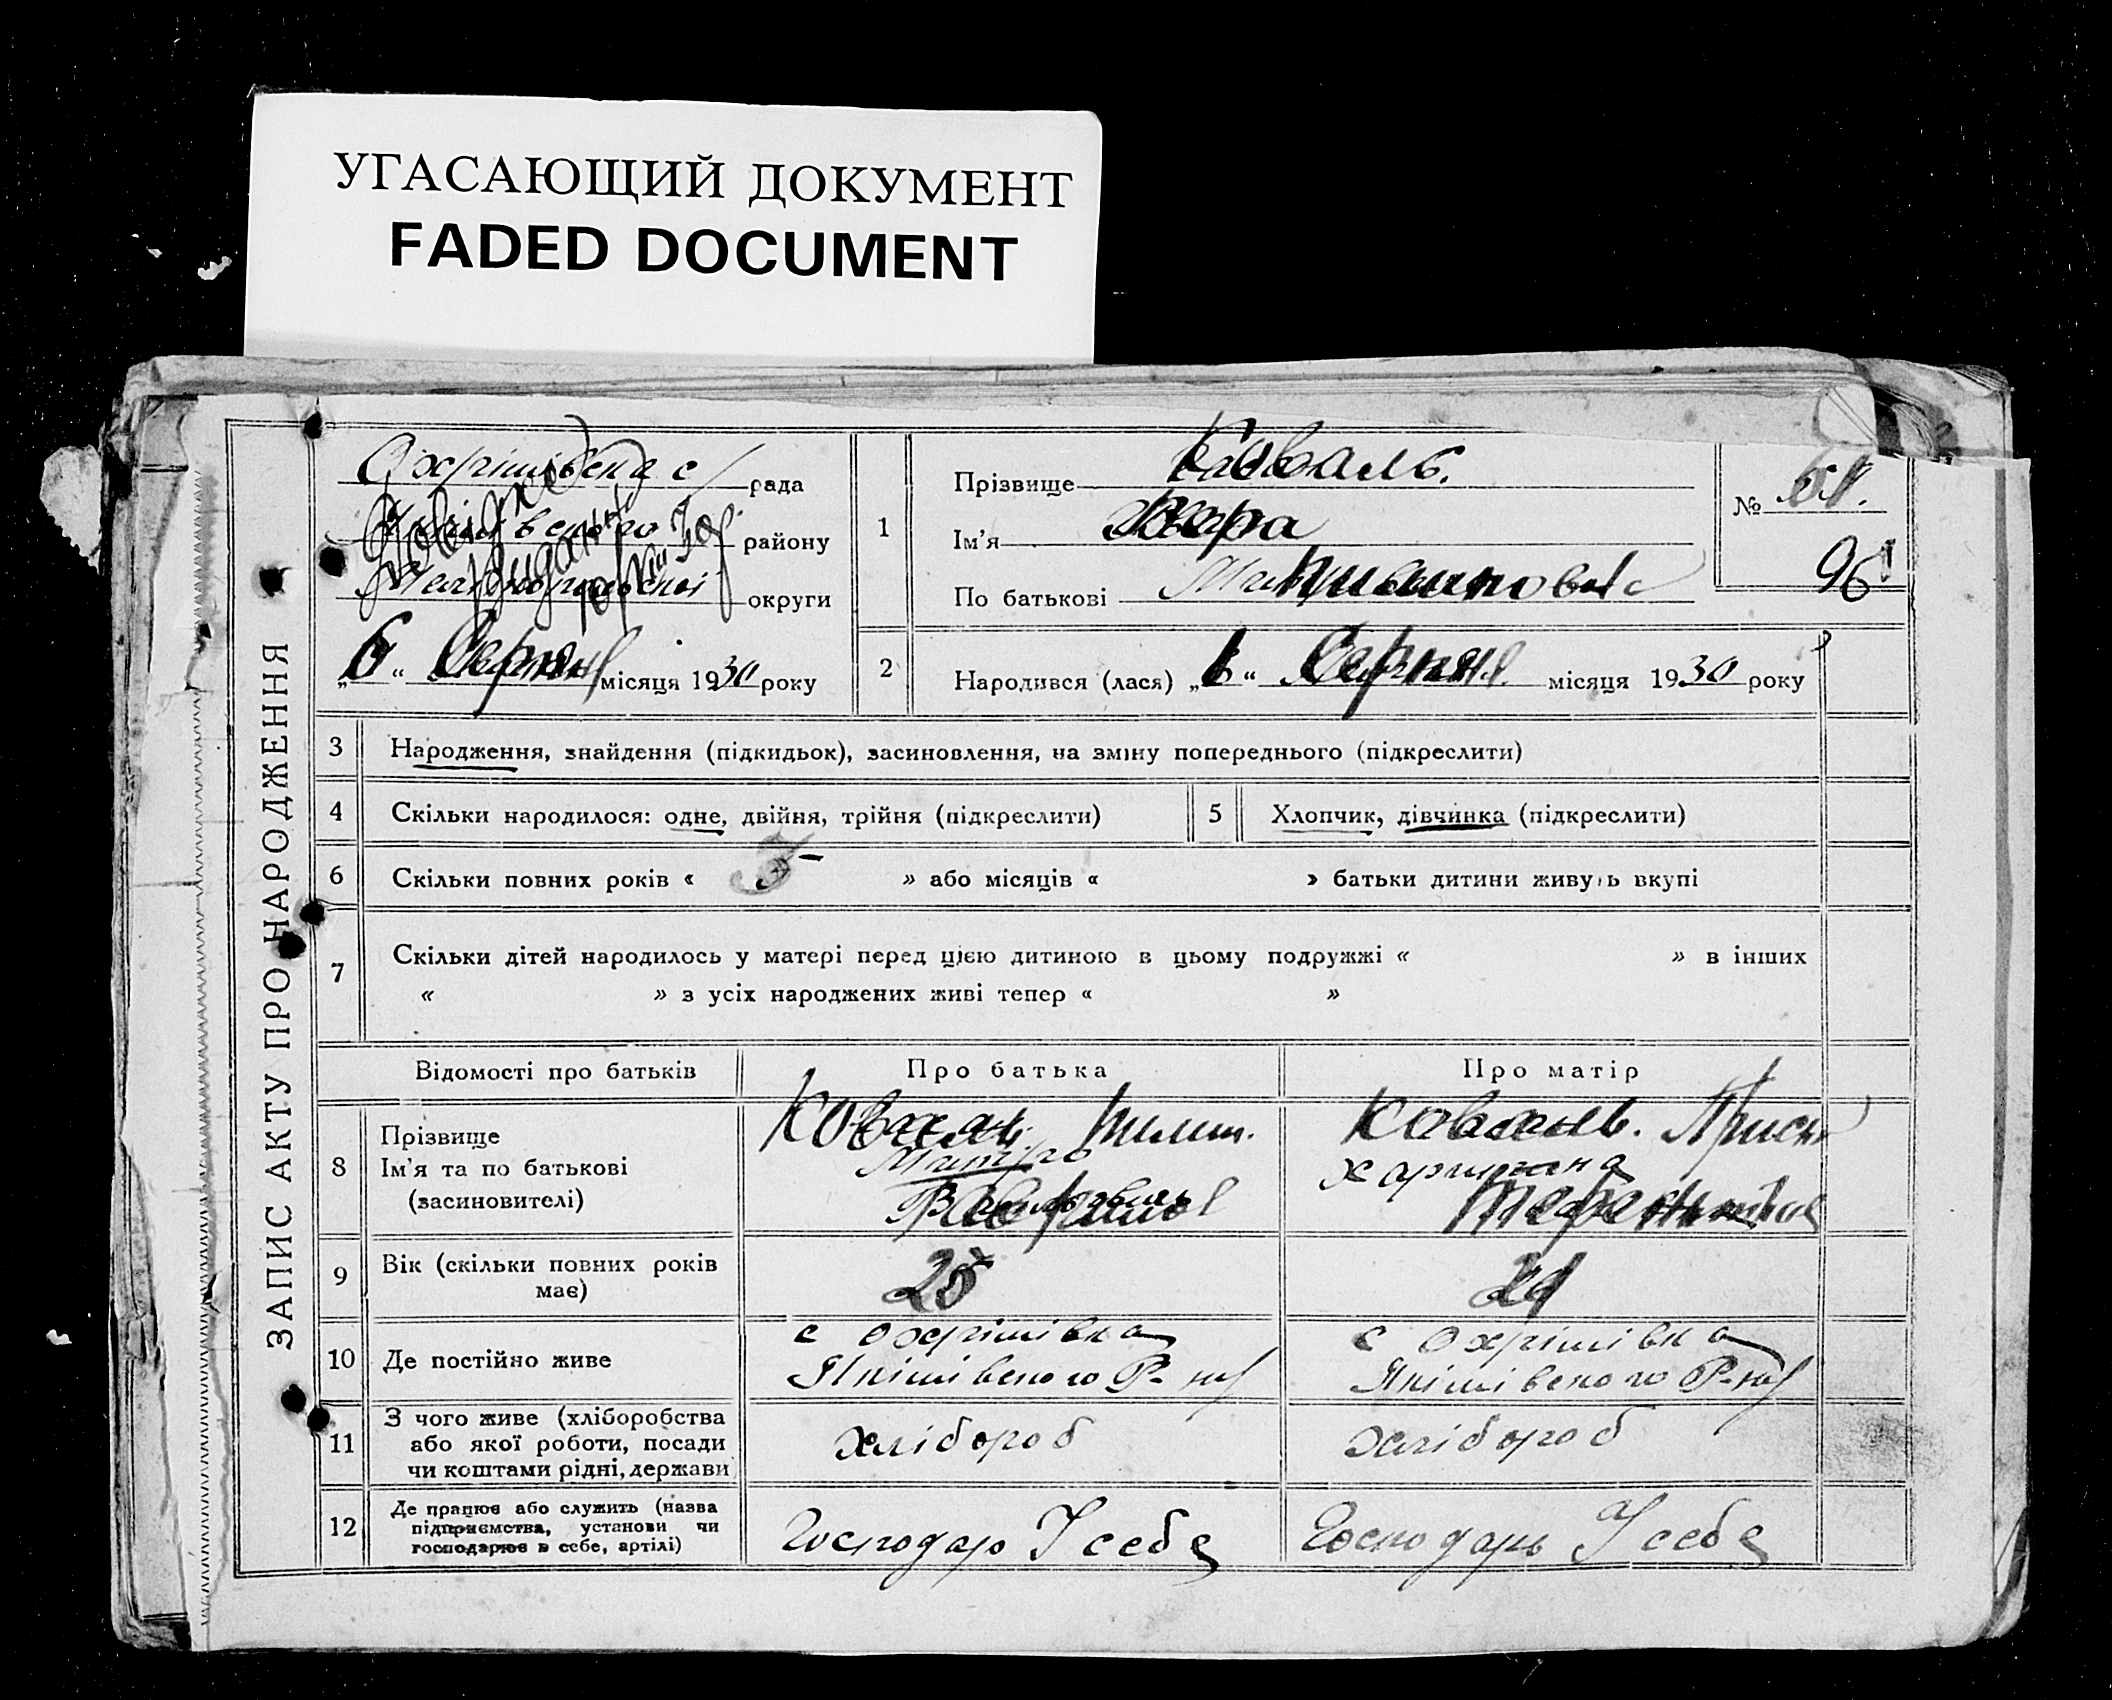 УГАСАЮЩИЙ ДОКУМЕНТ
FADED DOCUMENT
ЗАПИС АКТУ ПРО НАРОДЖЕННЯ
Охрімівська с/рада
району
округи
„6“ Серпня місяця 1930 року
1
Прізвище Коваль.
Ім'я Віра
По батькові
№
96
2
Народився (лася) „6“ Серпня місяця 1930 року
3 Народження, знайдення (підкидьок), засиновлення, на зміну попереднього (підкреслити)
4 Скільки народилося: одне, двійня, трійня (підкреслити)
5 Хлопчик, дівчинка (підкреслити)
6 Скільки повних років « » або місяців « » батьки дитини живуть вкупі
7 Скільки дітей народилось у матері перед цією дитиною в цьому подружжі « » в інших
« » з усіх народжених живі тепер « »
Відомості про батьків
Про батька
Про матір
8 Прізвище
Ім'я та по батькові
(засиновителі)
Коваль
Коваль.
9 Вік (скільки повних років
має)
25
10 Де постійно живе
с Охрімівка
Якімівського Р-ну
с Охрімівка
Якімівського Р-ну
11 З чого живе (хліборобства
або якої роботи, посади
чи коштами рідні, держави
хлібороб
хлібороб
12 Де працює або служить (назва
підприємства, установи чи
господарює в себе, артілі)
Господарь У себе
Господарь У себе